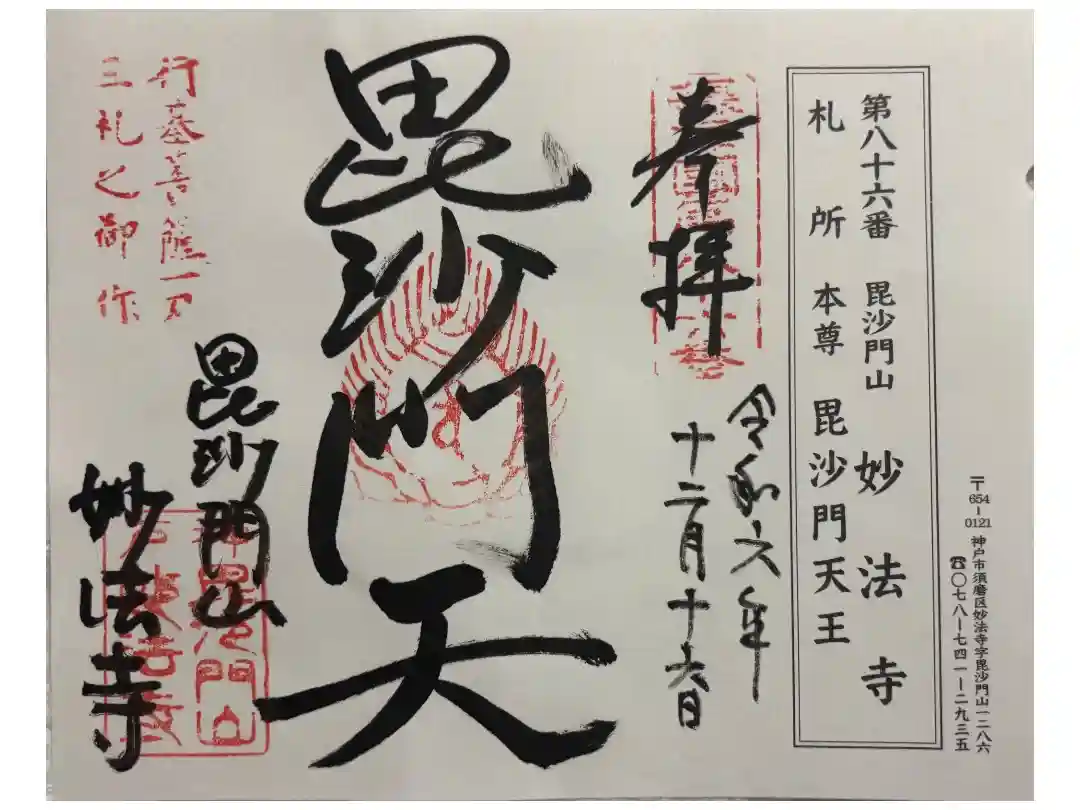 〒654-0121 神戸市須磨区妙法寺字毘沙門山一二八六
☎〇七八ー七四一ー二九三五
第八十六番 毘沙門山 妙法寺
札所 本尊 毘沙門天王
奉拝
令和六年
十二月十六日
毘沙門天
毘沙門山
妙法寺
行基菩薩一刀
三礼之御作